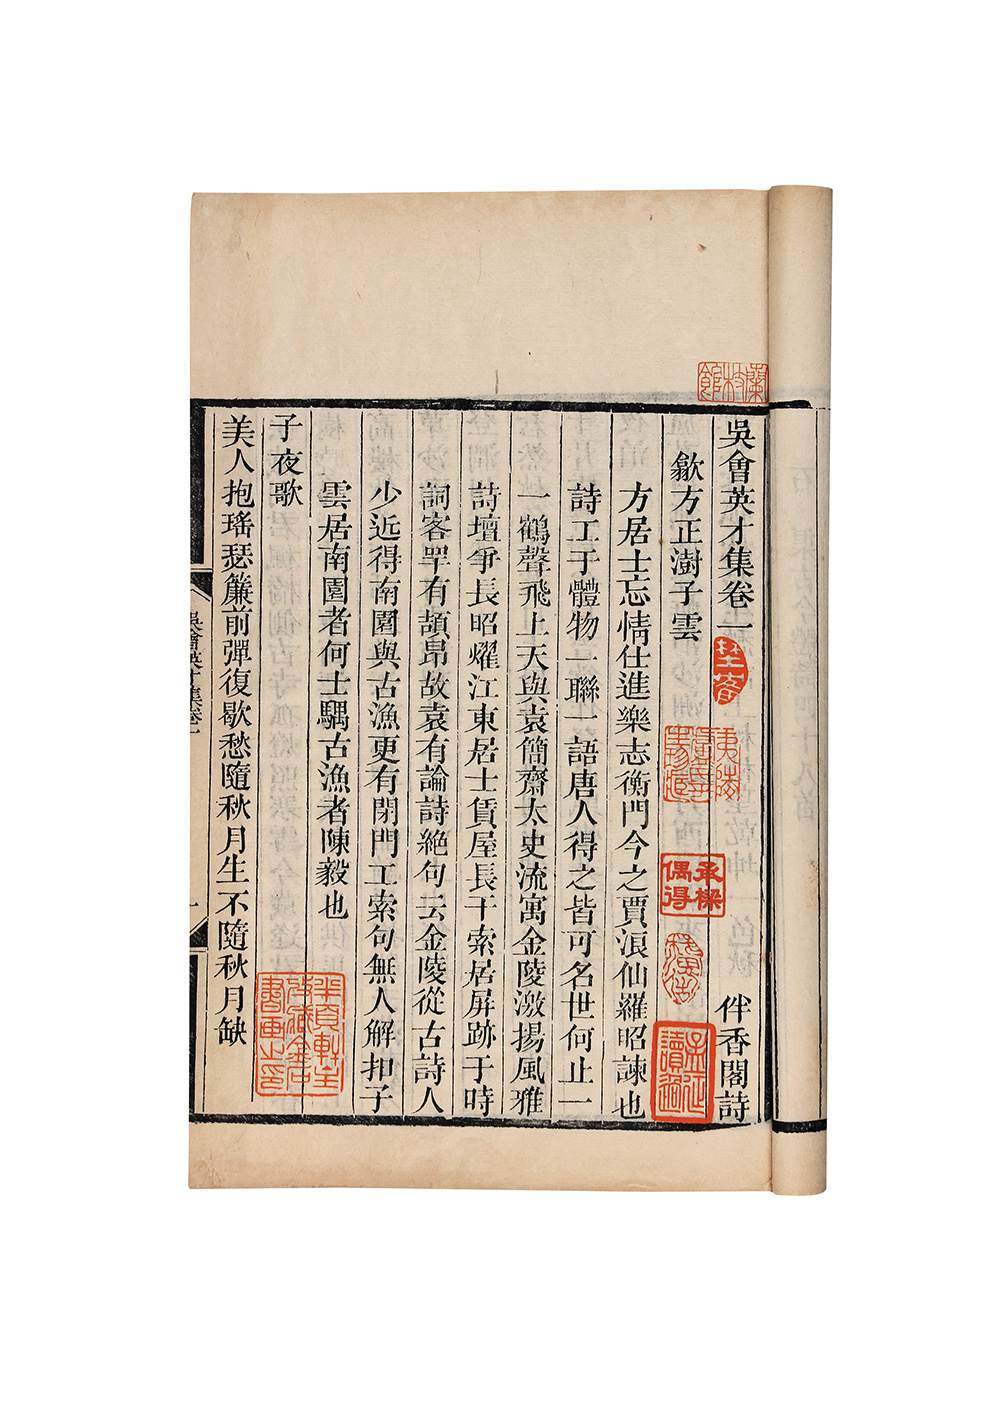 吳會英才集卷一　伴香閣詩
歙方正澍子雲
方居士忘情仕進樂志衡門今之賈浪仙羅昭諫也
詩工于體物一聯一語唐人得之皆可名世何止一
一鶴聲飛上天與袁簡齋太史流寓金陵激揚風雅
詩壇爭長昭燿江東居士賃屋長干索居屏跡于時
詞客罕有頡昂故袁有論詩絶句云金陵從古詩人
少近得南園與古漁更有閉門工索句無人解扣子
雲居南園者何士顒古漁者陳毅也
子夜歌
美人抱瑤瑟簾前彈復歇愁隨秋月生不隨秋月缺
吳會英才集卷一
一
蘭村館
埜客
承樑偶得
孟延讀過
半頁軒主